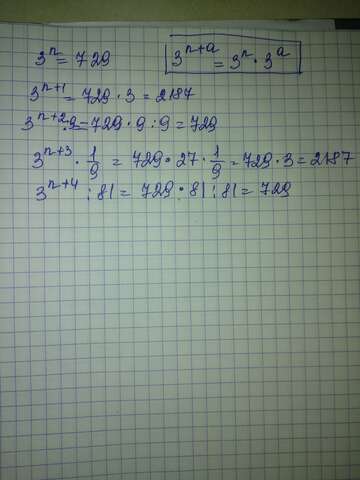 3ⁿ = 729
3ⁿ⁺ᵃ = 3ⁿ · 3ᵃ
3ⁿ⁺¹ = 729 · 3 = 2187
3ⁿ⁺² : 9 = 729 · 9 : 9 = 729
3ⁿ⁺³ · 1/9 = 729 · 27 · 1/9 = 729 · 3 = 2187
3ⁿ⁺⁴ : 81 = 729 · 81 : 81 = 729